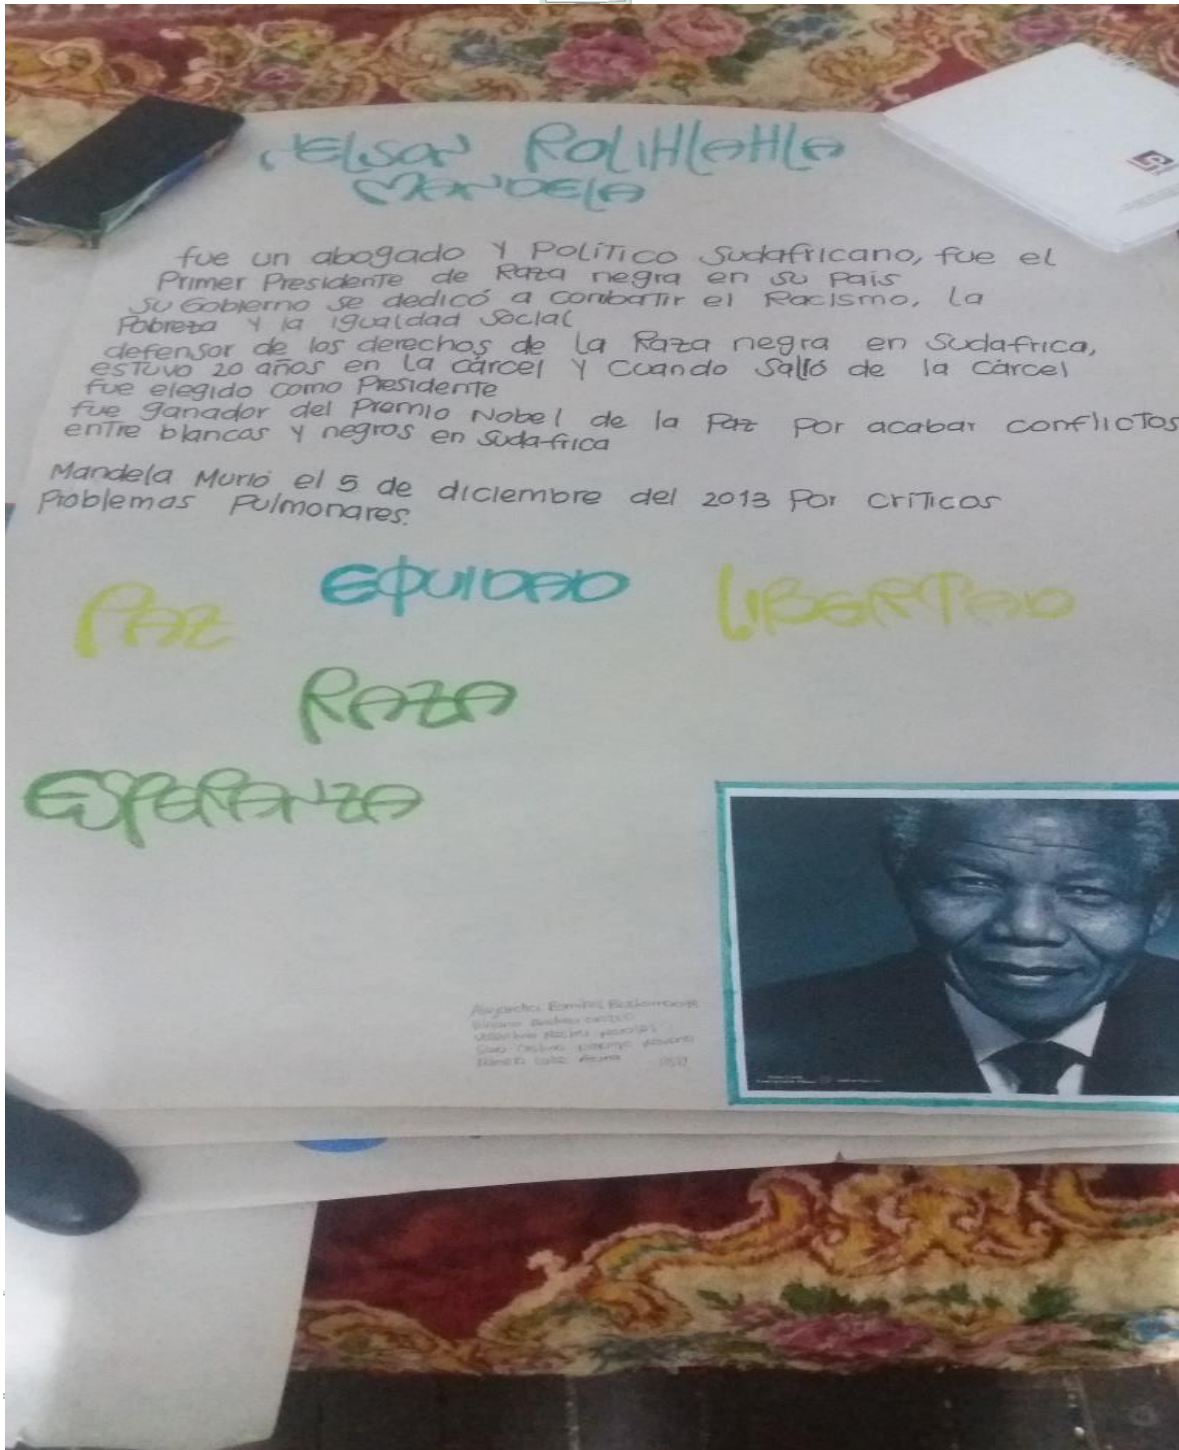 NELSON ROLIHLAHLA
MANDELA
fue un abogado Y Político Sudafricano, fue el
Primer Presidente de Raza negra en su País
Su Gobierno se dedicó a combatir el Racismo, la
Pobreza Y la igualdad Social
defensor de los derechos de la Raza negra en Sudafrica,
estuvo 20 años en la cárcel Y Cuando Salió de la cárcel
fue elegido como Presidente
fue ganador del Premio Nobel de la Paz Por acabar conflictos
entre blancas Y negros en Sudafrica
Mandela Murió el 5 de diciembre del 2013 Por Críticos
Problemas Pulmonares.
PAZ EQUIDAD LIBERTAD
RAZA
ESPERANZA